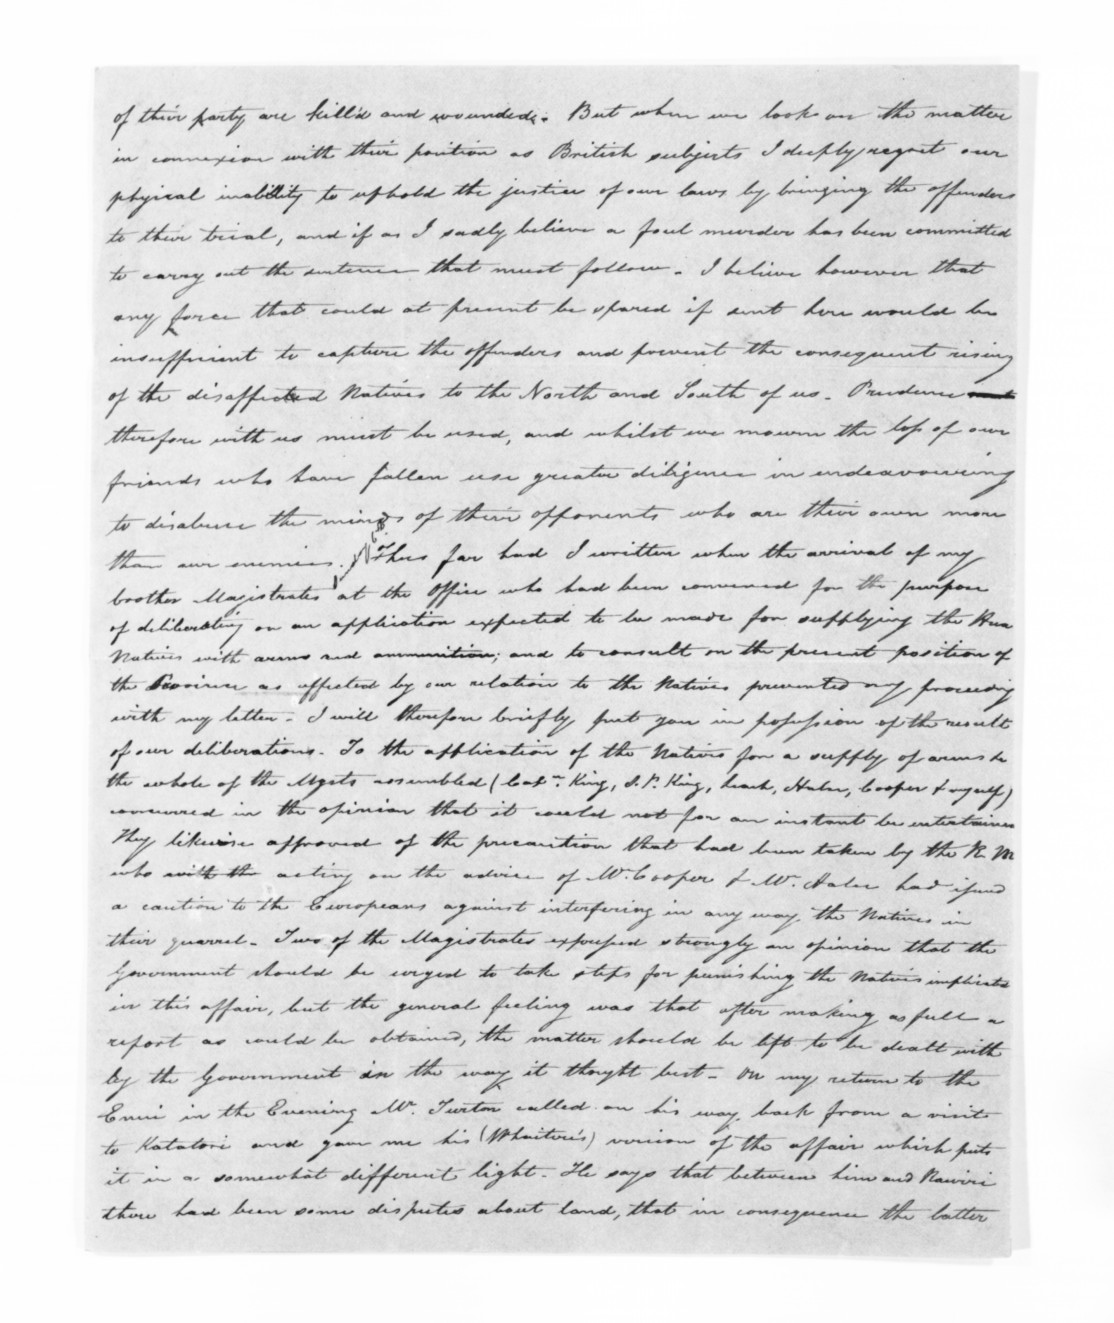 of their party are kill'd and wounded. But when we look on the matter
in connexion with their position as British subjects I deeply regret our
physical inability to uphold the justice of our laws by bringing the offenders
to their trial, and if as I sadly believe a foul murder has been committed
to carry out the sentence that must follow. I believe however that
any force that could at present be spared if sent here would be
insufficient to capture the offenders and prevent the consequent rising
of the disaffected Natives to the North and South of us. Prudence
therefore with us must be used, and whilst we mourn the loss of our
friends who have fallen use greater diligence in endeavouring
to disabuse the minds of their opponents who are their own more
than our enemies. Thus far had I written when the arrival of my
brother Magistrates at the Office who had been convened for the purpose
of deliberating on an application expected to be made for supplying the Hua
Natives with arms and ammunition; and to consult on the present position of
the Province as affected by our relation to the Natives prevented my proceeding
with my letter. I will therefore briefly put you in possession of the result
of our deliberations. To the application of the Natives for a supply of arms &c
the whole of the Mgsts assembled (Capn. King, S.P. King, Leach, Halse, Cooper & myself)
concurred in the opinion that it could not for an instant be entertained
They likewise approved of the precaution that had been taken by the R M
who with the acting on the advice of Mr. Cooper & Mr. Halse had issued
a caution to the Europeans against interfering in any way the Natives in
their quarrel. Two of the Magistrates expressed strongly an opinion that the
Government should be urged to take steps for punishing the Natives implicated
in this affair, but the general feeling was that after making as full a
report as could be obtained, the matter should be left to be dealt with
by the Government in the way it thought best. On my return to the
Enui in the Evening Mr. Turton called on his way back from a visit
to Katatori and gave me his (Whaitere's) version of the affair which puts
it in a somewhat different light. He says that between him and Rawiri
there had been some disputes about land, that in consequence the latter